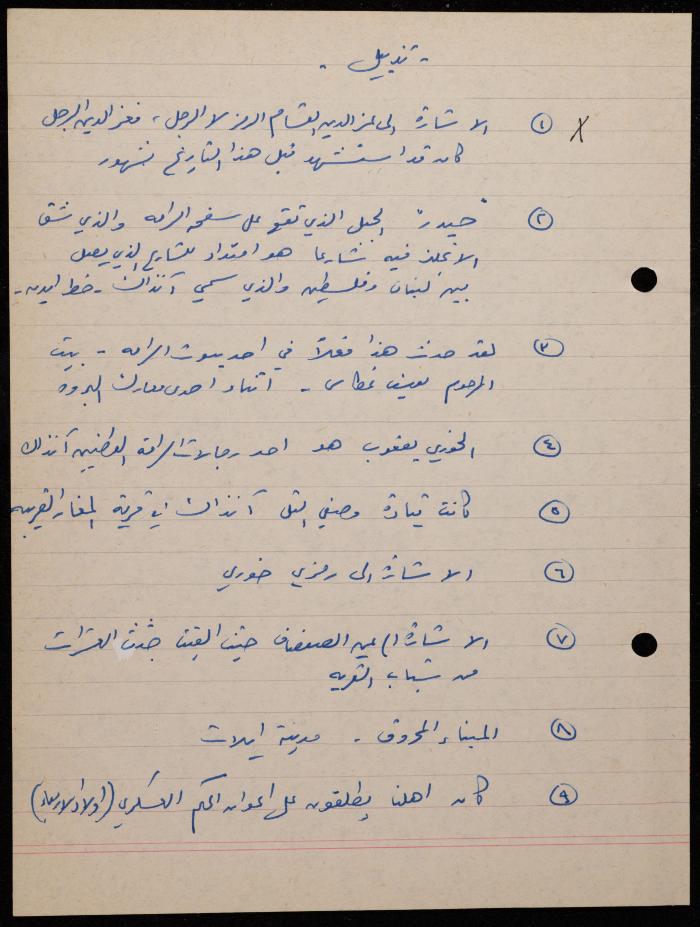 - تذييل -
X ١ الاشارة الى عز الدين القسام الرمز لا الرجل، فعز الدين الرجل
كان قد استشهد قبل هذا التاريخ بشهور
٢ "حيدر" الجبل الذي تقع على سفحه الرامه والذي شق
الانجليز فيه شارعا هو امتداد للشارع الذي يصل
بين لبنان وفلسطين والذي سمي آنذاك - خط ايدن -
٣ لقد حدث هذا فعلاً في احد بيوت الرامه - بيت
المرحوم غطاس - اثناء احدى معارك البروه
٤ الخوري يعقوب هو احد رجالات الرامة الوطنيين آنذاك
٥ كانت قيادة وصفي التل آنذاك في قرية المغار القريبه
٦ الاشارة الى رمزي خوري
٧ الاشارة الى عين الصفصاف حيث القيت جثث العشرات
من شباب القريه
٨ الميناء المحروق - مدينة ايلات
٩ كان اهلنا يطلقون على اعوان الحكم العسكري (اولاد الاربعاء)